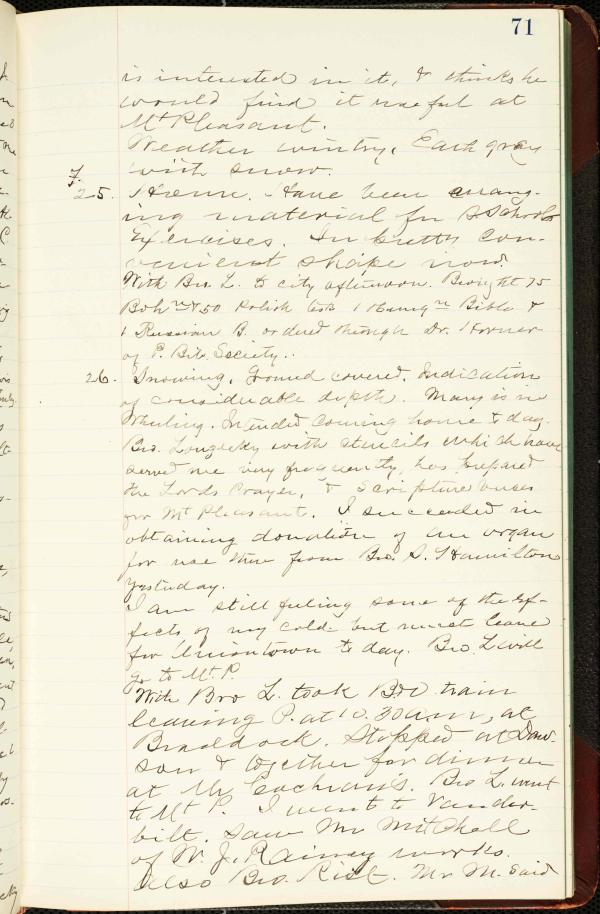 71
is interested in it, & thinks he
would find it useful at
Mt Pleasant.
Weather wintry. Earth gray
with snow.
F.
25. Home. Have been arrang-
ing material for S Schools
Exercises. In pretty con-
venient shape now.
With Bro. L. to city afternoon. Brought 75
Bohn & 50 Polish 1 Hungn Bible &
1 Russian B. ordered through Dr. Horner
of P. Bib. Society.
26. Snowing, Ground covered. Indication
of considerable depth. Mary is in
Wheeling. Intended coming home to day.
Bro. with stencils which have
served me very frequently, has prepared
the Lords Prayer, & Scripture verses
for Mt Pleasant. I succeeded in
obtaining donation of an organ
for use there from Bro. S. Hamilton
yesterday.
I am still feeling some of the ef-
fects of my cold but must leave
for Uniontown to day. Bro. L will
go to Mt. P.
With Bro L. took B&O train
leaving P. at 10.30 a.m., at
Braddock. Stopped at Daw-
son & together for dinner
at Mr Cochran's. Bro L. went
to Mt P. I went to Vander-
bilt. Saw Mr Mitchell
of W. J. Rainey works.
Also Bro. Rist. Mr M. said